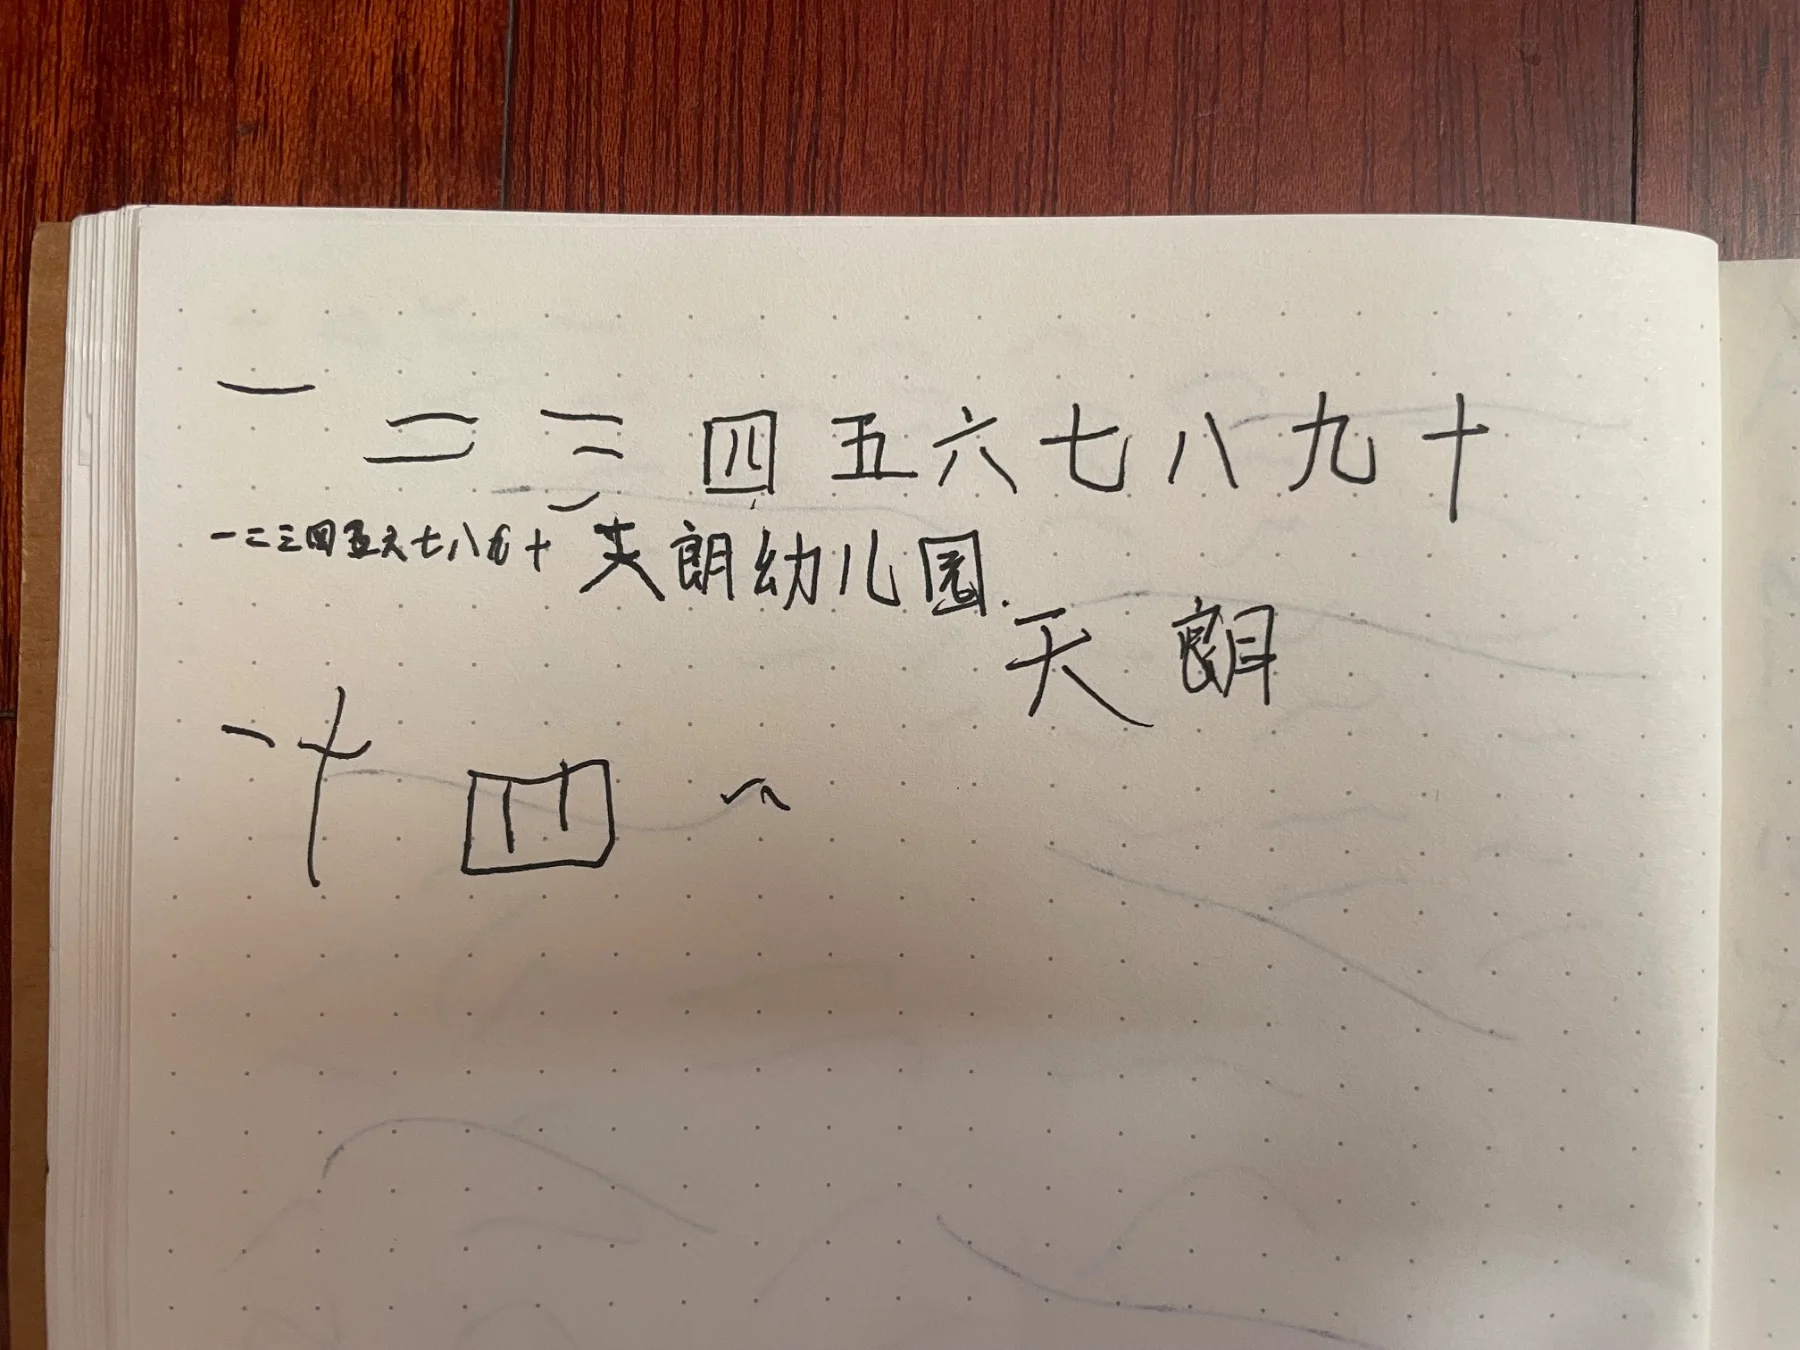 一二三四五六七八九十
一二三四五六七八九十 天朗幼儿园.
天朗
一十四